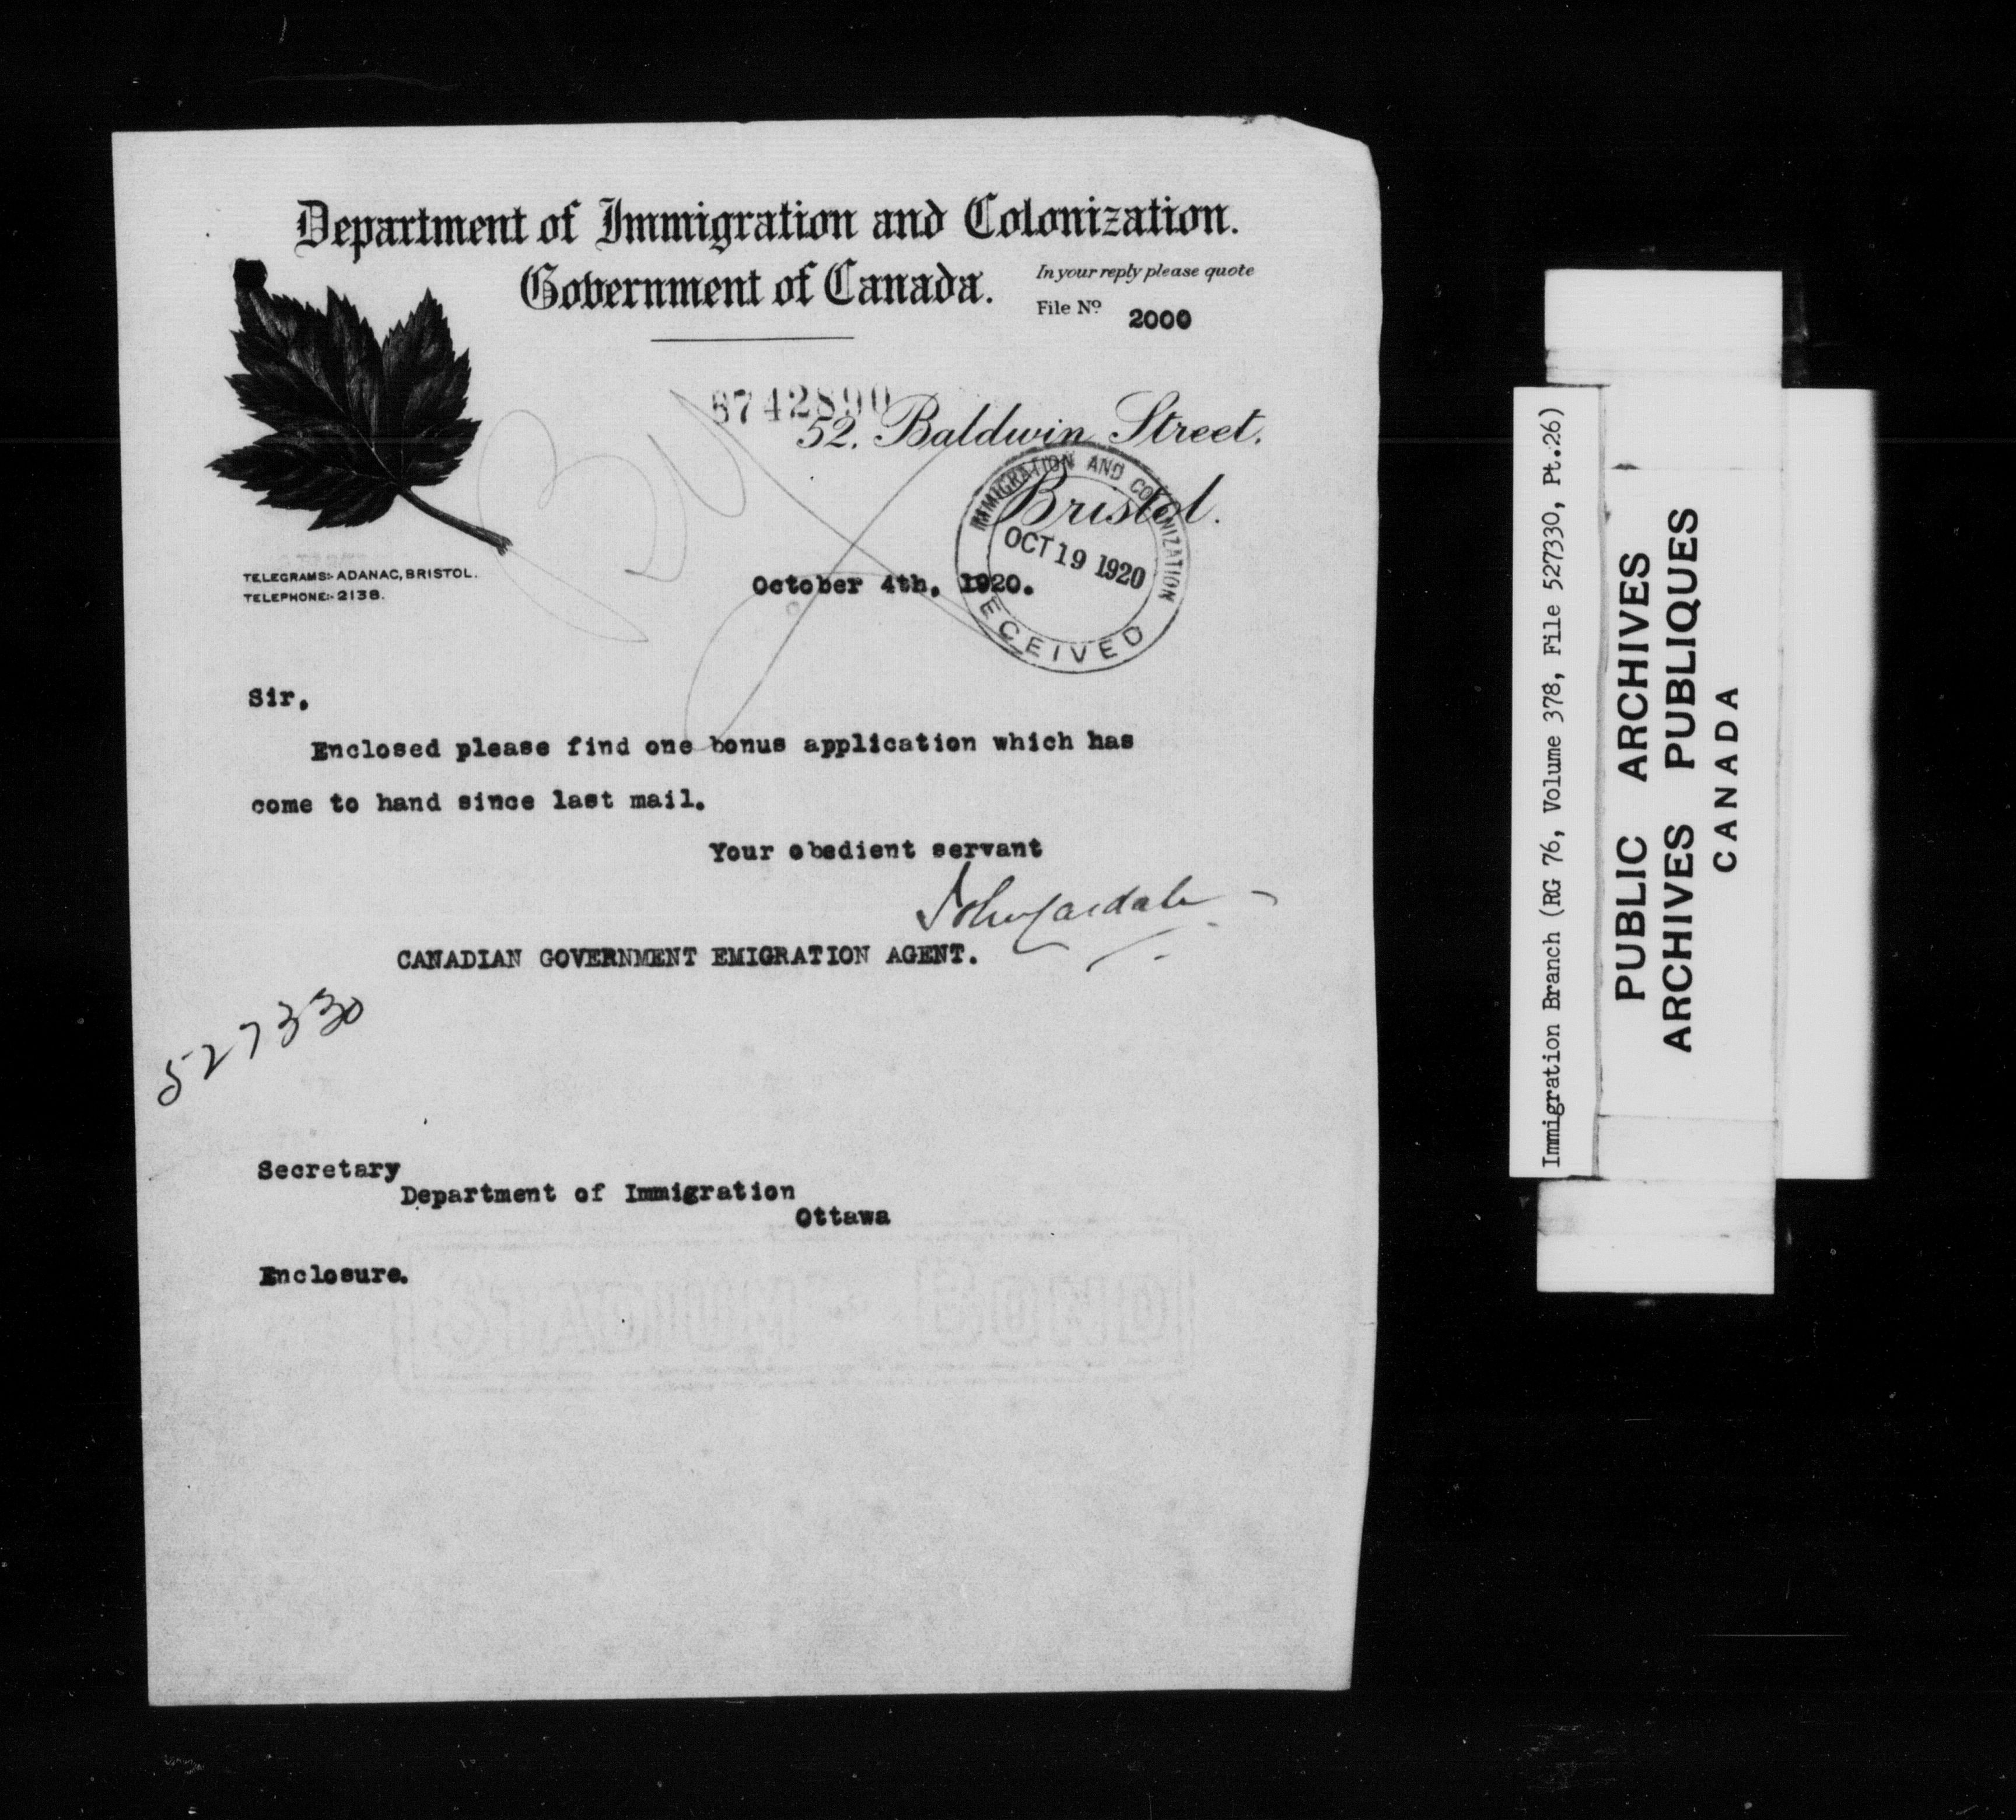 Department of Immigration and Colonization.
Government of Canada.
In your reply please quote
File No. 2000
8742890
52. Baldwin Street.
Bristol.
IMMIGRATION AND COLONIZATION
OCT 19 1920
RECEIVED
TELEGRAMS:- ADANAC, BRISTOL.
TELEPHONE:- 2138.
October 4th, 1920.
Sir,
Enclosed please find one bonus application which has
come to hand since last mail.
Your obedient servant
CANADIAN GOVERNMENT EMIGRATION AGENT.
527330
Secretary
Department of Immigration
Ottawa
Enclosure.
Immigration Branch (RG 76, Volume 378, File 527330, Pt.26)
PUBLIC ARCHIVES
ARCHIVES PUBLIQUES
CANADA